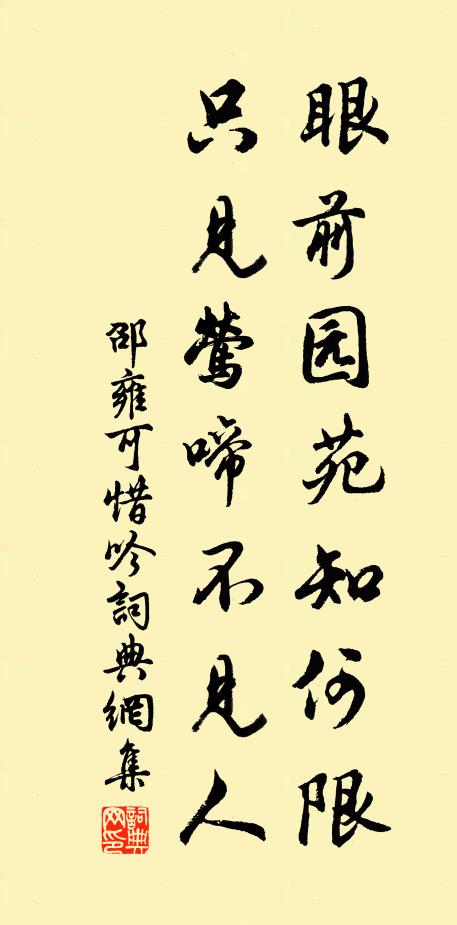 眼前园苑知何限
只见莺啼不见人
邵雍可惜吟詞典網集
詞典網印